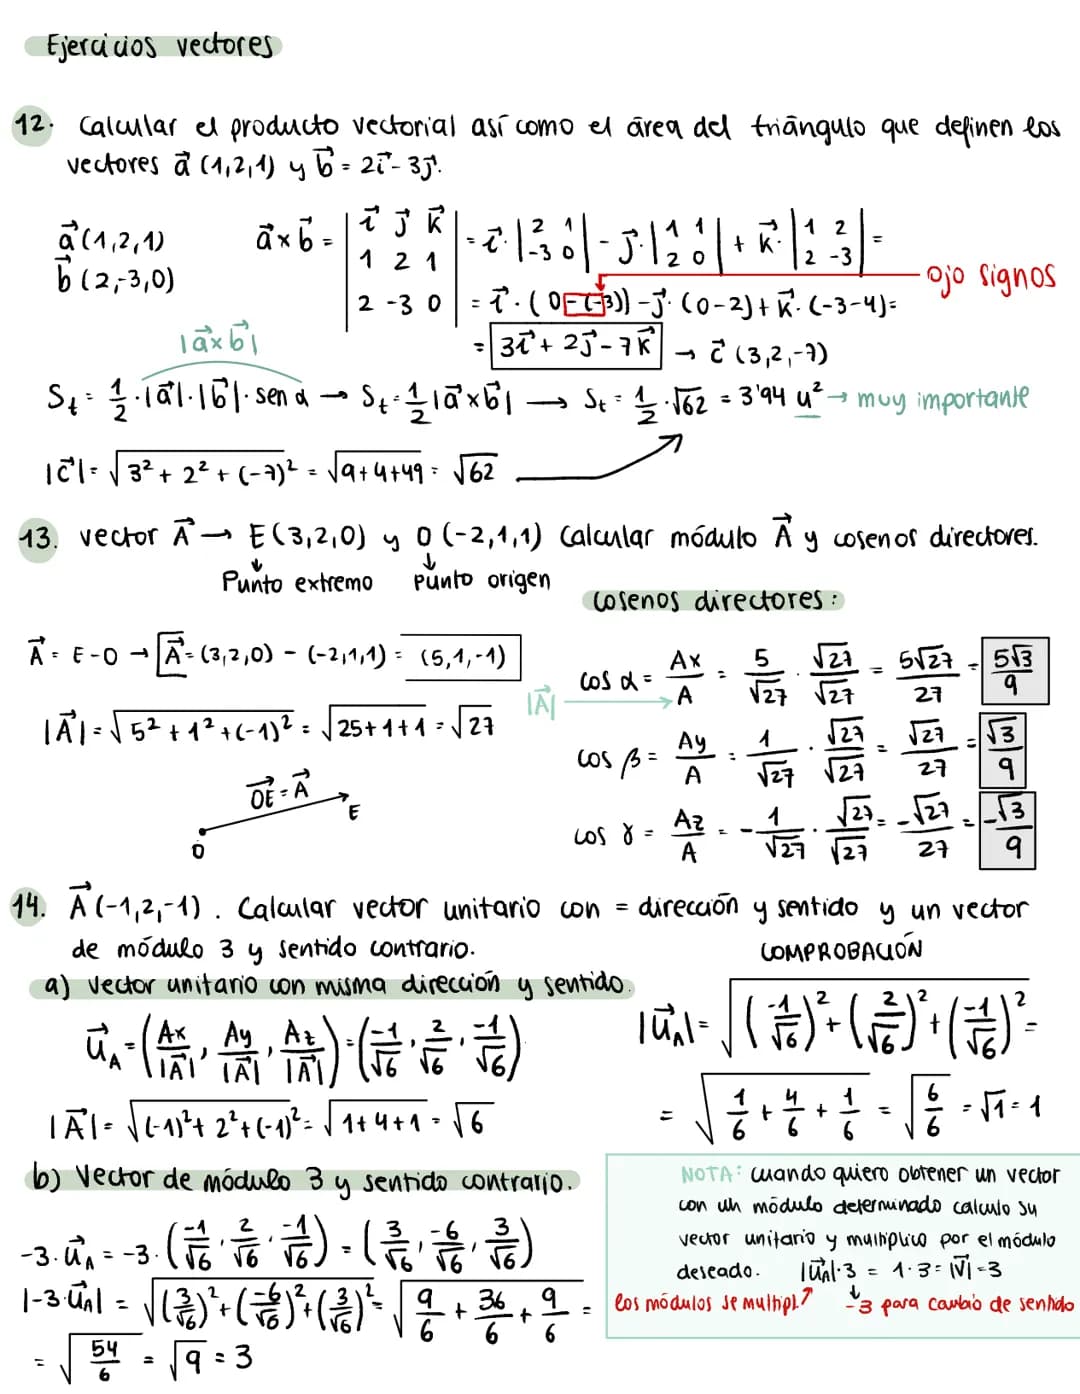 Ejercicios vectores
12. Calcular el producto vectorial así como el área del triángulo que definen los
vectores a⃗ (1,2,1) y b⃗ = 2i⃗ - 3j⃗.
a⃗ (1,2,1)
b⃗ (2,-3,0)
a⃗ x b⃗ = | i⃗ j⃗ k⃗ ; 1 2 1 ; 2 -3 0 | = i⃗ · | 2 1 ; -3 0 | - j⃗ · | 1 1 ; 2 0 | + k⃗ · | 1 2 ; 2 -3 | =
= i⃗ · (0-(-3)) - j⃗ · (0-2) + k⃗ · (-3-4) =
ojo signos
= 3i⃗ + 2j⃗ - 7k⃗ → c⃗ (3,2,-7)
|a⃗ x b⃗|
St = 1/2 · |a⃗| · |b⃗| · sen α → St = 1/2 |a⃗ x b⃗| → St = 1/2 · √62 = 3'94 u² → muy importante
|c⃗| = √(3² + 2² + (-7)²) = √(9+4+49) = √62
13. vector A⃗ → E(3,2,0) y O(-2,1,1) Calcular módulo A⃗ y cosenos directores.
Punto extremo punto origen
cosenos directores:
A⃗ = E - O → A⃗ = (3,2,0) - (-2,1,1) = (5,1,-1)
|A⃗| = √(5² + 1² + (-1)²) = √(25+1+1) = √27
OE⃗ = A⃗
E
O
|A⃗|
cos α = Ax/A = 5/√27 · √27/√27 = 5√27/27 = 5√3/9
cos β = Ay/A = 1/√27 · √27/√27 = √27/27 = √3/9
cos γ = Az/A = -1/√27 · √27/√27 = -√27/27 = -√3/9
14. A⃗ (-1,2,-1). Calcular vector unitario con = dirección y sentido y un vector
de módulo 3 y sentido contrario.
a) Vector unitario con misma dirección y sentido.
u⃗A = (Ax/|A⃗|, Ay/|A⃗|, Az/|A⃗|) = (-1/√6, 2/√6, -1/√6)
|A⃗| = √((-1)² + 2² + (-1)²) = √(1+4+1) = √6
COMPROBACIÓN
|u⃗A| = √((-1/√6)² + (2/√6)² + (-1/√6)²) =
= √(1/6 + 4/6 + 1/6) = √(6/6) = √1 = 1
b) Vector de módulo 3 y sentido contrario.
-3 · u⃗A = -3 · (-1/√6, 2/√6, -1/√6) = (3/√6, -6/√6, 3/√6)
|-3·u⃗A| = √((3/√6)² + (-6/√6)² + (3/√6)²) = √(9/6 + 36/6 + 9/6) =
= √(54/6) = √9 = 3
NOTA: cuando quiero obtener un vector
con un módulo determinado calculo su
vector unitario y multiplico por el módulo
deseado. |u⃗A|·3 = 1·3 = |V⃗| = 3
los módulos se multipl. -3 para cambio de sentido